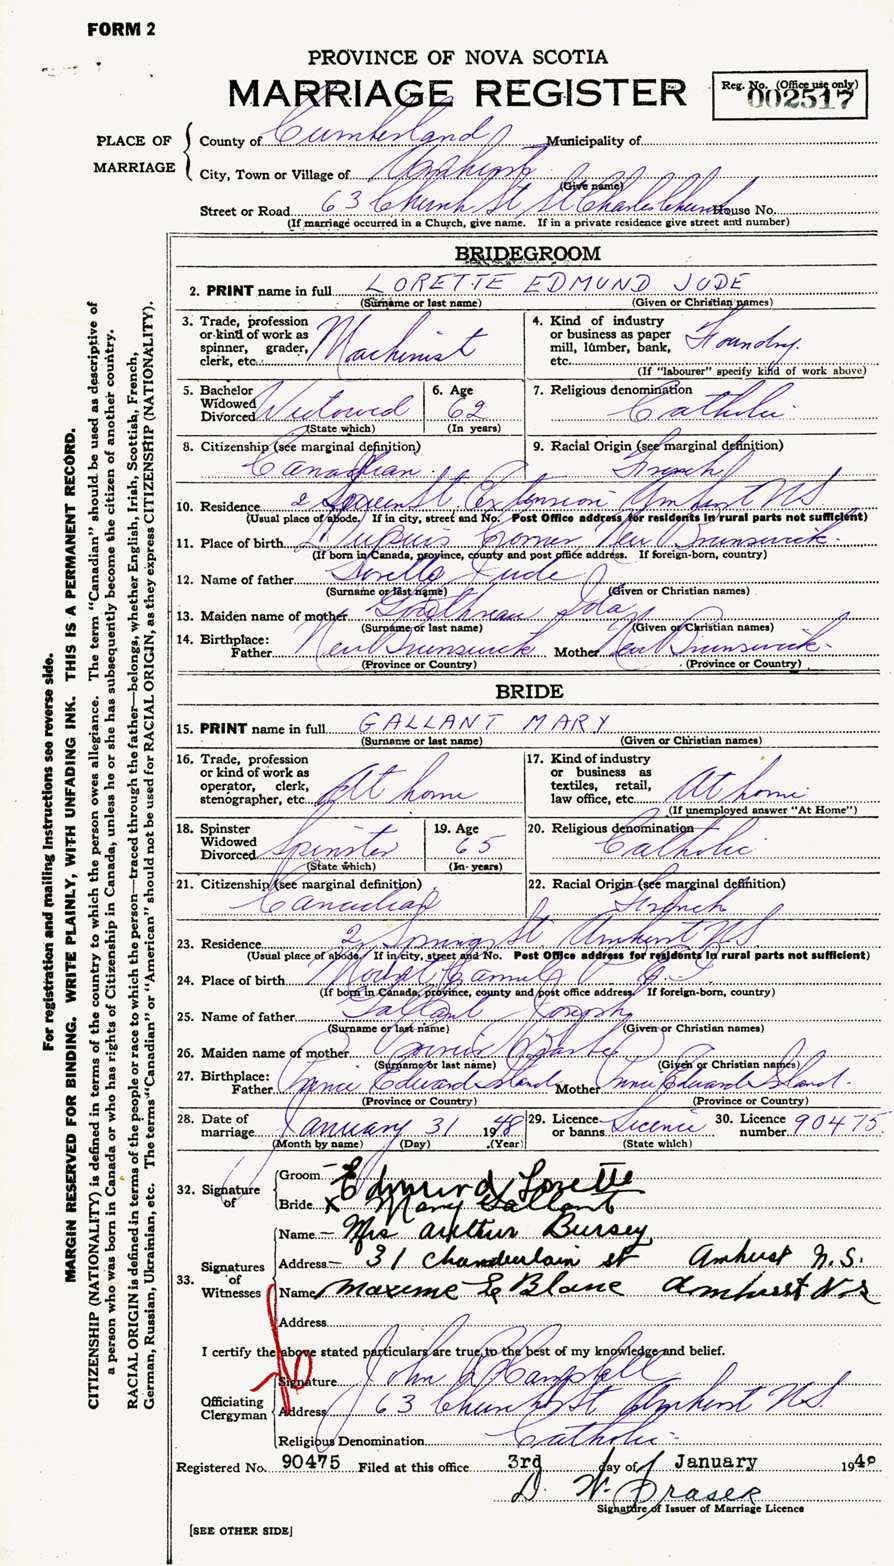 FORM 2
PROVINCE OF NOVA SCOTIA
MARRIAGE REGISTER
Reg. No. (Office use only)
002517
PLACE OF MARRIAGE
County of Cumberland Municipality of
City, Town or Village of Amherst
(Give name)
Street or Road 63 Church St St Charles Church House No.
(If marriage occurred in a Church, give name. If in a private residence give street and number)
BRIDEGROOM
2. PRINT name in full LORETTE EDMUND JUDE
(Surname or last name) (Given or Christian names)
3. Trade, profession or kind of work as spinner, grader, clerk, etc. Machinist
4. Kind of industry or business as paper mill, lumber, bank, etc. Foundry.
(If "labourer" specify kind of work above)
5. Bachelor Widowed Divorced Widowed
(State which)
6. Age 62
(In years)
7. Religious denomination Catholic
8. Citizenship (see marginal definition)
Canadian
9. Racial Origin (see marginal definition)
French
10. Residence 2 St Extension Amherst NS
(Usual place of abode. If in city, street and No. Post Office address for residents in rural parts not sufficient)
11. Place of birth Dupuis Corner New Brunswick
(If born in Canada, province, county and post office address. If foreign-born, country)
12. Name of father Lorette Jude
(Surname or last name) (Given or Christian names)
13. Maiden name of mother Ida
(Surname or last name) (Given or Christian names)
14. Birthplace: Father New Brunswick Mother New Brunswick
(Province or Country) (Province or Country)
BRIDE
15. PRINT name in full GALLANT MARY
(Surname or last name) (Given or Christian names)
16. Trade, profession or kind of work as operator, clerk, stenographer, etc. At home
17. Kind of industry or business as textiles, retail, law office, etc. At home
(If unemployed answer "At Home")
18. Spinster Widowed Divorced Spinster
(State which)
19. Age 65
(In years)
20. Religious denomination Catholic
21. Citizenship (see marginal definition)
Canadian
22. Racial Origin (see marginal definition)
French
23. Residence 2 Spring St Amherst NS
(Usual place of abode. If in city, street and No. Post Office address for residents in rural parts not sufficient)
24. Place of birth Mount Carmel P. E. I.
(If born in Canada, province, county and post office address. If foreign-born, country)
25. Name of father Gallant Joseph
(Surname or last name) (Given or Christian names)
26. Maiden name of mother
(Surname or last name) (Given or Christian names)
27. Birthplace: Father Prince Edward Island Mother Prince Edward Island
(Province or Country) (Province or Country)
28. Date of marriage January 31 1948
(Month by name) (Day) (Year)
29. Licence or banns Licence
(State which)
30. Licence number 90475
32. Signature of
Groom Edmund Lorette
Bride X Mary Gallant
33. Signatures of Witnesses
Name Mrs Arthur Bursey
Address 31 Chamberlain st Amherst N.S.
Name Maxime E Blanc Amherst N S
Address
I certify the above stated particulars are true to the best of my knowledge and belief.
Officiating Clergyman
Signature John A Campbell
Address 63 Church St Amherst N.S.
Religious Denomination Catholic
Registered No. 90475 Filed at this office 3rd day of January 1948
D. W. Fraser
Signature of Issuer of Marriage Licence
[SEE OTHER SIDE]
For registration and mailing instructions see reverse side.
MARGIN RESERVED FOR BINDING. WRITE PLAINLY, WITH UNFADING INK. THIS IS A PERMANENT RECORD.
CITIZENSHIP (NATIONALITY) is defined in terms of the country to which the person owes allegiance. The term "Canadian" should be used as descriptive of
a person who was born in Canada or who has rights of Citizenship in Canada, unless he or she has subsequently become the citizen of another country.
RACIAL ORIGIN is defined in terms of the people or race to which the person—traced through the father—belongs, whether English, Irish, Scottish, French,
German, Russian, Ukrainian, etc. The terms "Canadian" or "American" should not be used for RACIAL ORIGIN, as they express CITIZENSHIP (NATIONALITY).